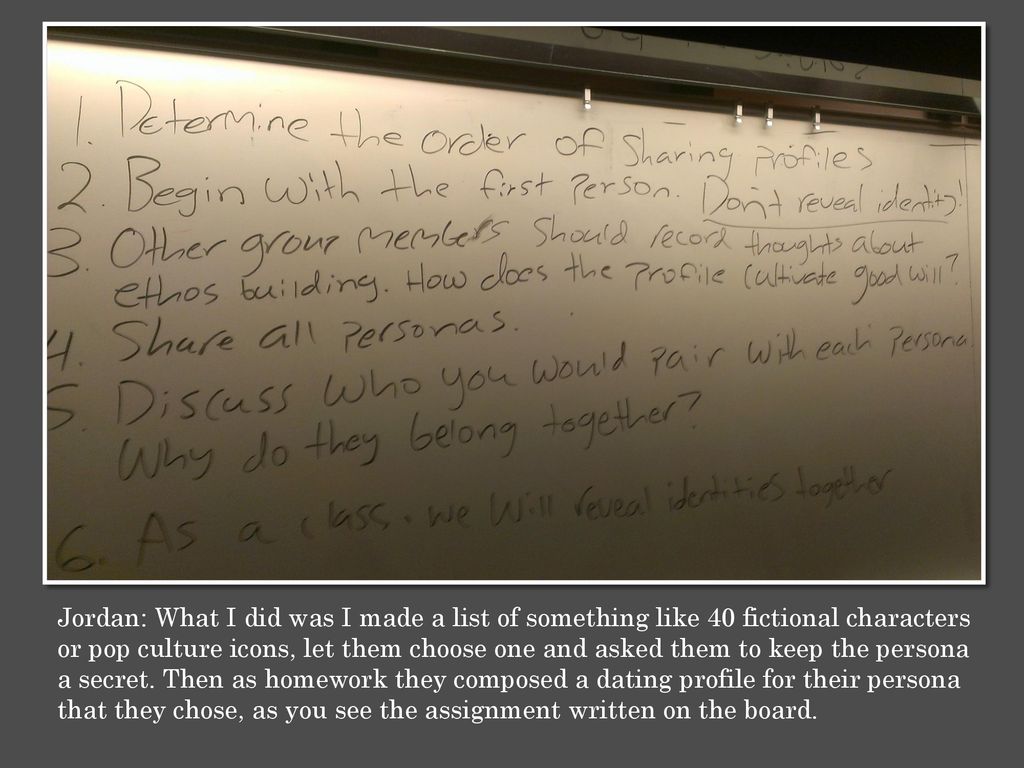 1. Determine the order of Sharing profiles
2. Begin with the first person. Don't reveal identity!
3. Other group members should record thoughts about
ethos building. How does the profile cultivate good will?
4. Share all personas.
5. Discuss who you would pair with each persona.
Why do they belong together?
6. As a class, we will reveal identities together
Jordan: What I did was I made a list of something like 40 fictional characters
or pop culture icons, let them choose one and asked them to keep the persona
a secret. Then as homework they composed a dating profile for their persona
that they chose, as you see the assignment written on the board.